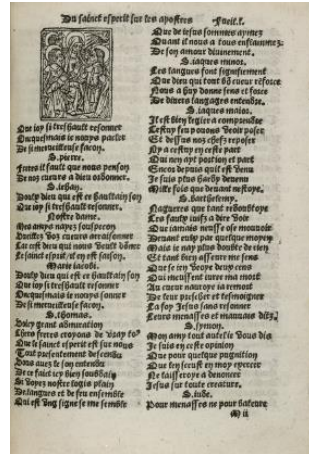 Du sainct esperit sur les apostres
Que ioy si treshault resonner
Oncquesmais ie nouys parler
De si merveilleuse facon.
S. pierre.
Freres il fault que nous penson
De noz cueurs a dieu ordonner.
S. iehan.
Doulx dieu qui est ce haultain son
Que ioy si treshault resonner.
Nostre dame.
Mes amys nayez souspecon
Vueillez voz cueurs arraisonner
Car cest dieu qui nous veult donner
Le sainct esprit/et en fait son.
Marie iacobi.
Doulx dieu qui est ce haultain son
Que ioy si treshault resonner
Oncquesmais ie nouys sonner
De si merveilleuse facon.
S. thomas.
Voicy grant admiration
Chers freres croyons de vray
Que le sainct esperit est sur nous
Tout presentement descendu
Vous avez le son entendu
De ce faict icy bien soubdain
Si voyez nostre logis plain
De langues et de feu ensemble
Qui est ung signe se me semble
Que de iesus sommes aymez
Quant il nous a tous enflammez
De son amour divinement.
S. iaques minor.
Ces langues font signifiement
Que dieu qui tout bon cueur efforce
Nous a huy donne sens et force
De divers langages entendre.
S. iaques maior.
Il est bien legier a comprendre
Cestuy feu povons veoir poser
Et dessus noz chefz reposer
Ny a cestuy en ceste part
Qui nen ayt portion et part
Encores depuis quil est venu
Je suis plus hardy devenu
Mille fois que devant nestoye.
S. barthelemy.
Nagueres que tant redoubtoye
Les faulx iuifz a dire voir
Que iamais neusse ose mouvoir
Devant eulx par quelque moyen
Mais ie nay plus doubte de rien
Et tant bien asseure me sens
Que se ien voyoe deux cens
Qui meussent iure ma mort
Au cueur nauroye ia remort
De leur prescher et tesmoigner
La foy Jesus sans resonner
Leurs menasses et mauvais ditz.
S. symon.
Mon amy tout autel ie vous dis
Je suis en ceste opinion
Que pour quelque pugnition
Que len sceust en moy exercer
Ne laisseroye a denoncer
Jesus sur toute creature.
S. iude.
Pour menasses ne pour bateure
M ii